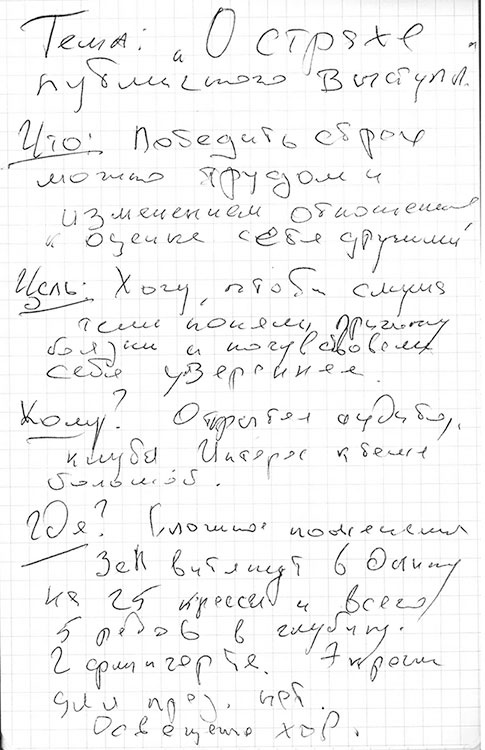 Тема: „О страхе"
публичного выступл.
Что: Победить страх
можно трудом и
изменением отношения
к оценке себя другими
Цель: Хочу, чтобы слуша
тели поняли причину
боязни и почувствовали
себя увереннее.
Кому? Открытая
клуба Интерес к теме
большой.
Где?
Зал вытянут в длину
на 25 кресел и всего
5 рядов в глубину.
2 флипчарта. Экрана
для през. нет.
Освещение хор.